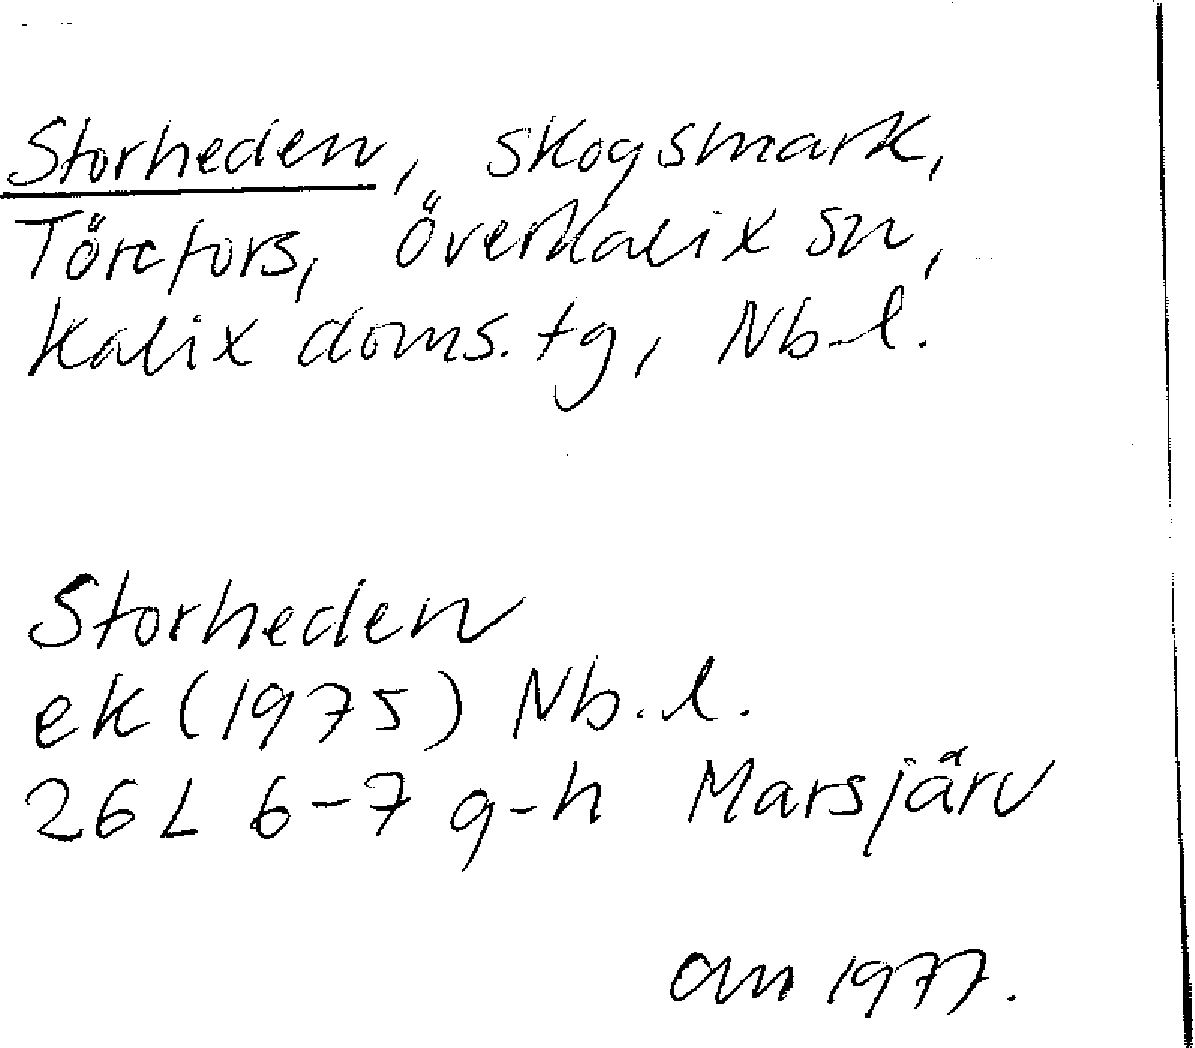 Storheden, skogsmark,
Törefors, Överkalix sn,
Kalix doms. tg, Nb. l.
Storheden
ek (1975) Nb. l.
26 L 6-7 g-h Marsjärv
am 1977.